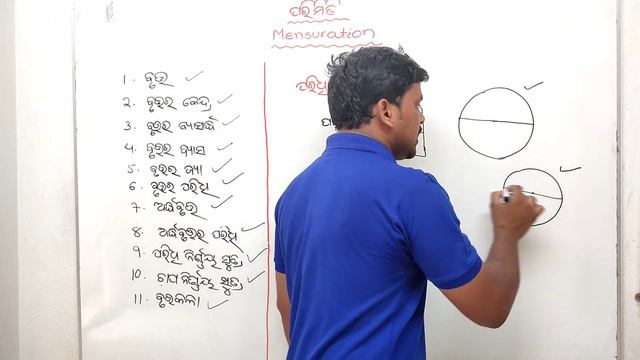 ପରିମିତି
Mensuration
1. ବୃତ୍ତ
2. ବୃତ୍ତର କେନ୍ଦ୍ର
3. ବୃତ୍ତର ବ୍ୟାସାର୍ଦ୍ଧ
4. ବୃତ୍ତର ବ୍ୟାସ
5. ବୃତ୍ତର ଜ୍ୟା
6. ବୃତ୍ତର ପରିଧି
7. ଅର୍ଦ୍ଧବୃତ୍ତ
8. ଅର୍ଦ୍ଧବୃତ୍ତର ପରିଧି
9. ପରିଧି ନିର୍ଣ୍ଣୟ ସୂତ୍ର
10. ଚାପ ନିର୍ଣ୍ଣୟ ସୂତ୍ର
11. ବୃତ୍ତକଳା
ପରିଧି